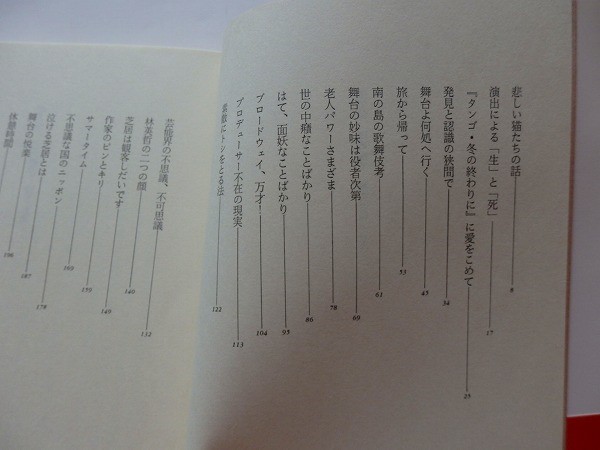 悲しい猫たちの話 8
演出による「生」と「死」 17
『タンゴ・冬の終わりに』に愛をこめて 25
発見と認識の狭間で 34
舞台よ何処へ行く 45
旅から帰って 53
南の島の歌舞伎考 61
舞台の妙味は役者次第 69
老人パワーさまざま 78
世の中癪なことばかり 86
はて、面妖なことばかり 95
ブロードウェイ、万才! 104
プロデューサー不在の現実 113
素敵にトシをとる法 122
芸能界の不思議、不可思議 132
林英哲の二つの顔 140
芝居は観客しだいです 149
作家のピンとキリ 159
サマータイム 169
不思議な国のニッポン 178
泣ける芝居とは 187
舞台の悦楽 196
休憩時間